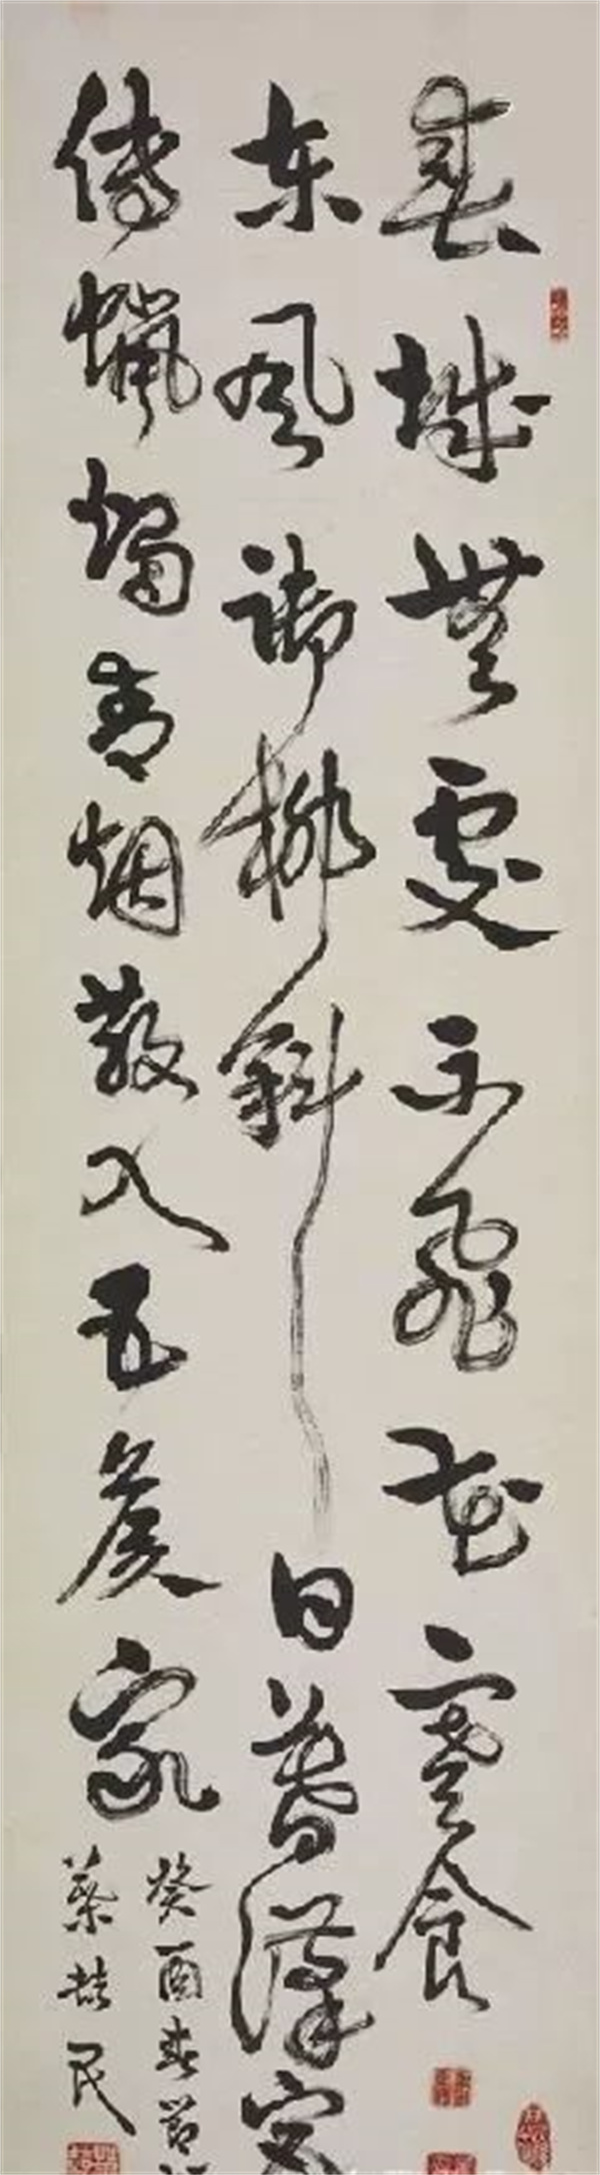 春城無處不飛花寒食
东风御柳斜日暮漢宫
傳蠟燭青烟散入五侯家
癸酉春节
葉喆民